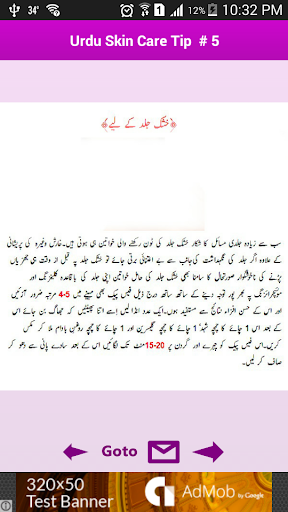 34°
10:32 PM
Urdu Skin Care Tip # 5
﴿خشک جلد کے لیے﴾
سب سے زیادہ جلدی مسائل کا شکار خشک جلد کی نون رکھنے والی خواتین ہی ہوتی ہیں۔خارش وغیرہ کی پریشانی
کے علاوہ اگر جلد کی نگہداشت کی جانب سے بے اعتنائی برتی جائے تو خشک جلد پہ قبل از وقت ہی جھریاں
پڑنے کی ناخوشگوار صورتحال کا سامنا بھی خشک جلد کی حامل خواتین اپنی جلد کی باقاعدہ کلینزنگ اور
موئسچرائزنگ پہ بھر پور توجہ دینے کے ساتھ ساتھ درج ذیل فیس پیک بھی مہینے میں 5-4 مرتبہ ضرور آزمائیں
اور اس کے حسن افزاء نتائج سے مستفید ہوں۔ایک عدد انڈا لیں اسے اتنا پھینٹیں کہ جھاگ بن جائے اس
کے بعد اس 1 چائے کا چمچہ شہد 1 چائے کا چمچہ گلیسرین اور 1 چائے کا چمچہ روغن بادام ملا کر مکس
کریں۔اس فیس پیک کو چہرے اور گردن پر 20-15منٹ تک لگائیں اس کے بعد سادے پانی سے دھو کر
صاف کر لیں۔
Goto
320x50
Test Banner
AdMob by Google